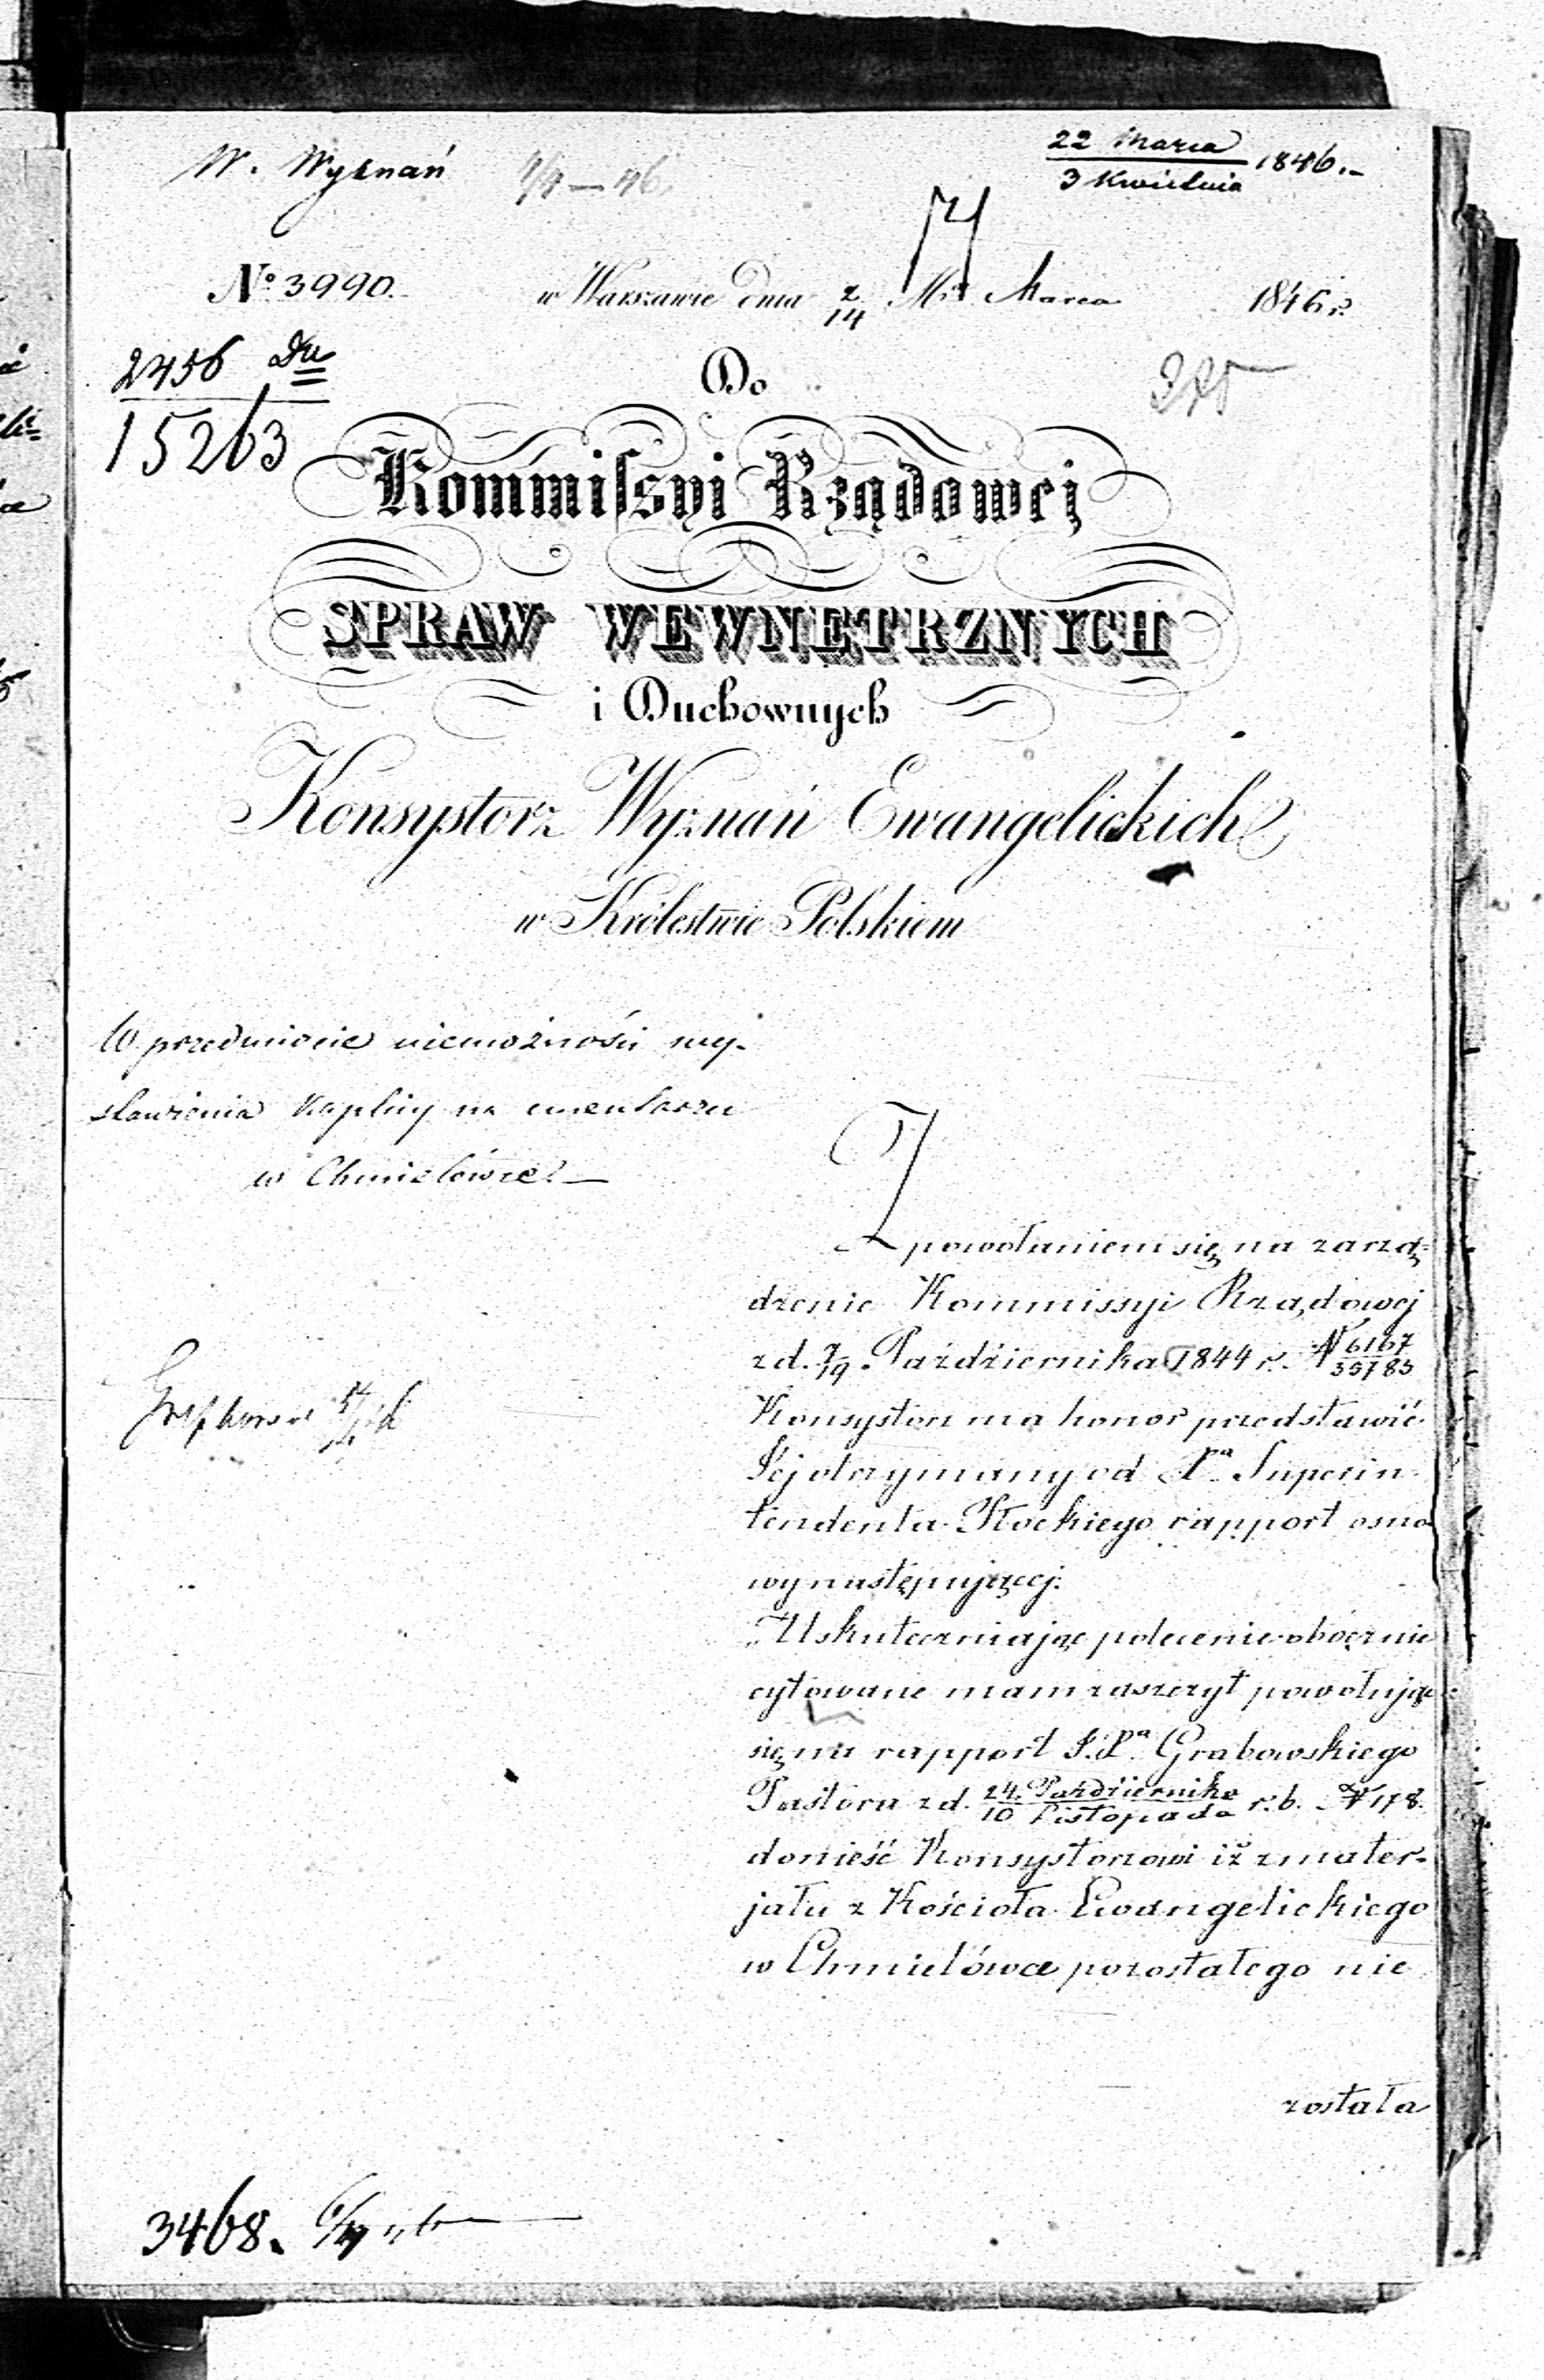 W. Wyznań 4/4 — 46.
22 Marca
3 Kwietnia 1846.
№ 3990.
w Warszawie dnia 2/14 Mca Marca 1846 r.
2456 Du
15263
Do
Kommissyi Rządowej
SPRAW WEWNETRZNYCH
i Duchownych
Konsystorz Wyznań Ewangelickich
w Królestwie Polskiem
W przedmiocie niemożności wy-
stawienia Kaplicy na cmentarzu
w Chmielówce.—
Z powołaniem się na zarzą-
dzenie Kommissyi Rządowej
z d. 7/19 Października 1844 r. N 6167/35783
Konsystorz ma honor przedstawić
Jej otrzymany od Pa Superin-
tendenta Płockiego rapport osno-
wy następującej:
„Uskuteczniając polecenie obocznie
cytowane mam zaszczyt powołując
się na rapport J. Pa Grabowskiego
Pastora z d. 24. Października/10 Listopada r. b. N 178.
donieść Konsystorzowi iż z mater-
jału z Kościoła Ewangelickiego
w Chmielówce pozostałego nie
została
3468. 6/4 46